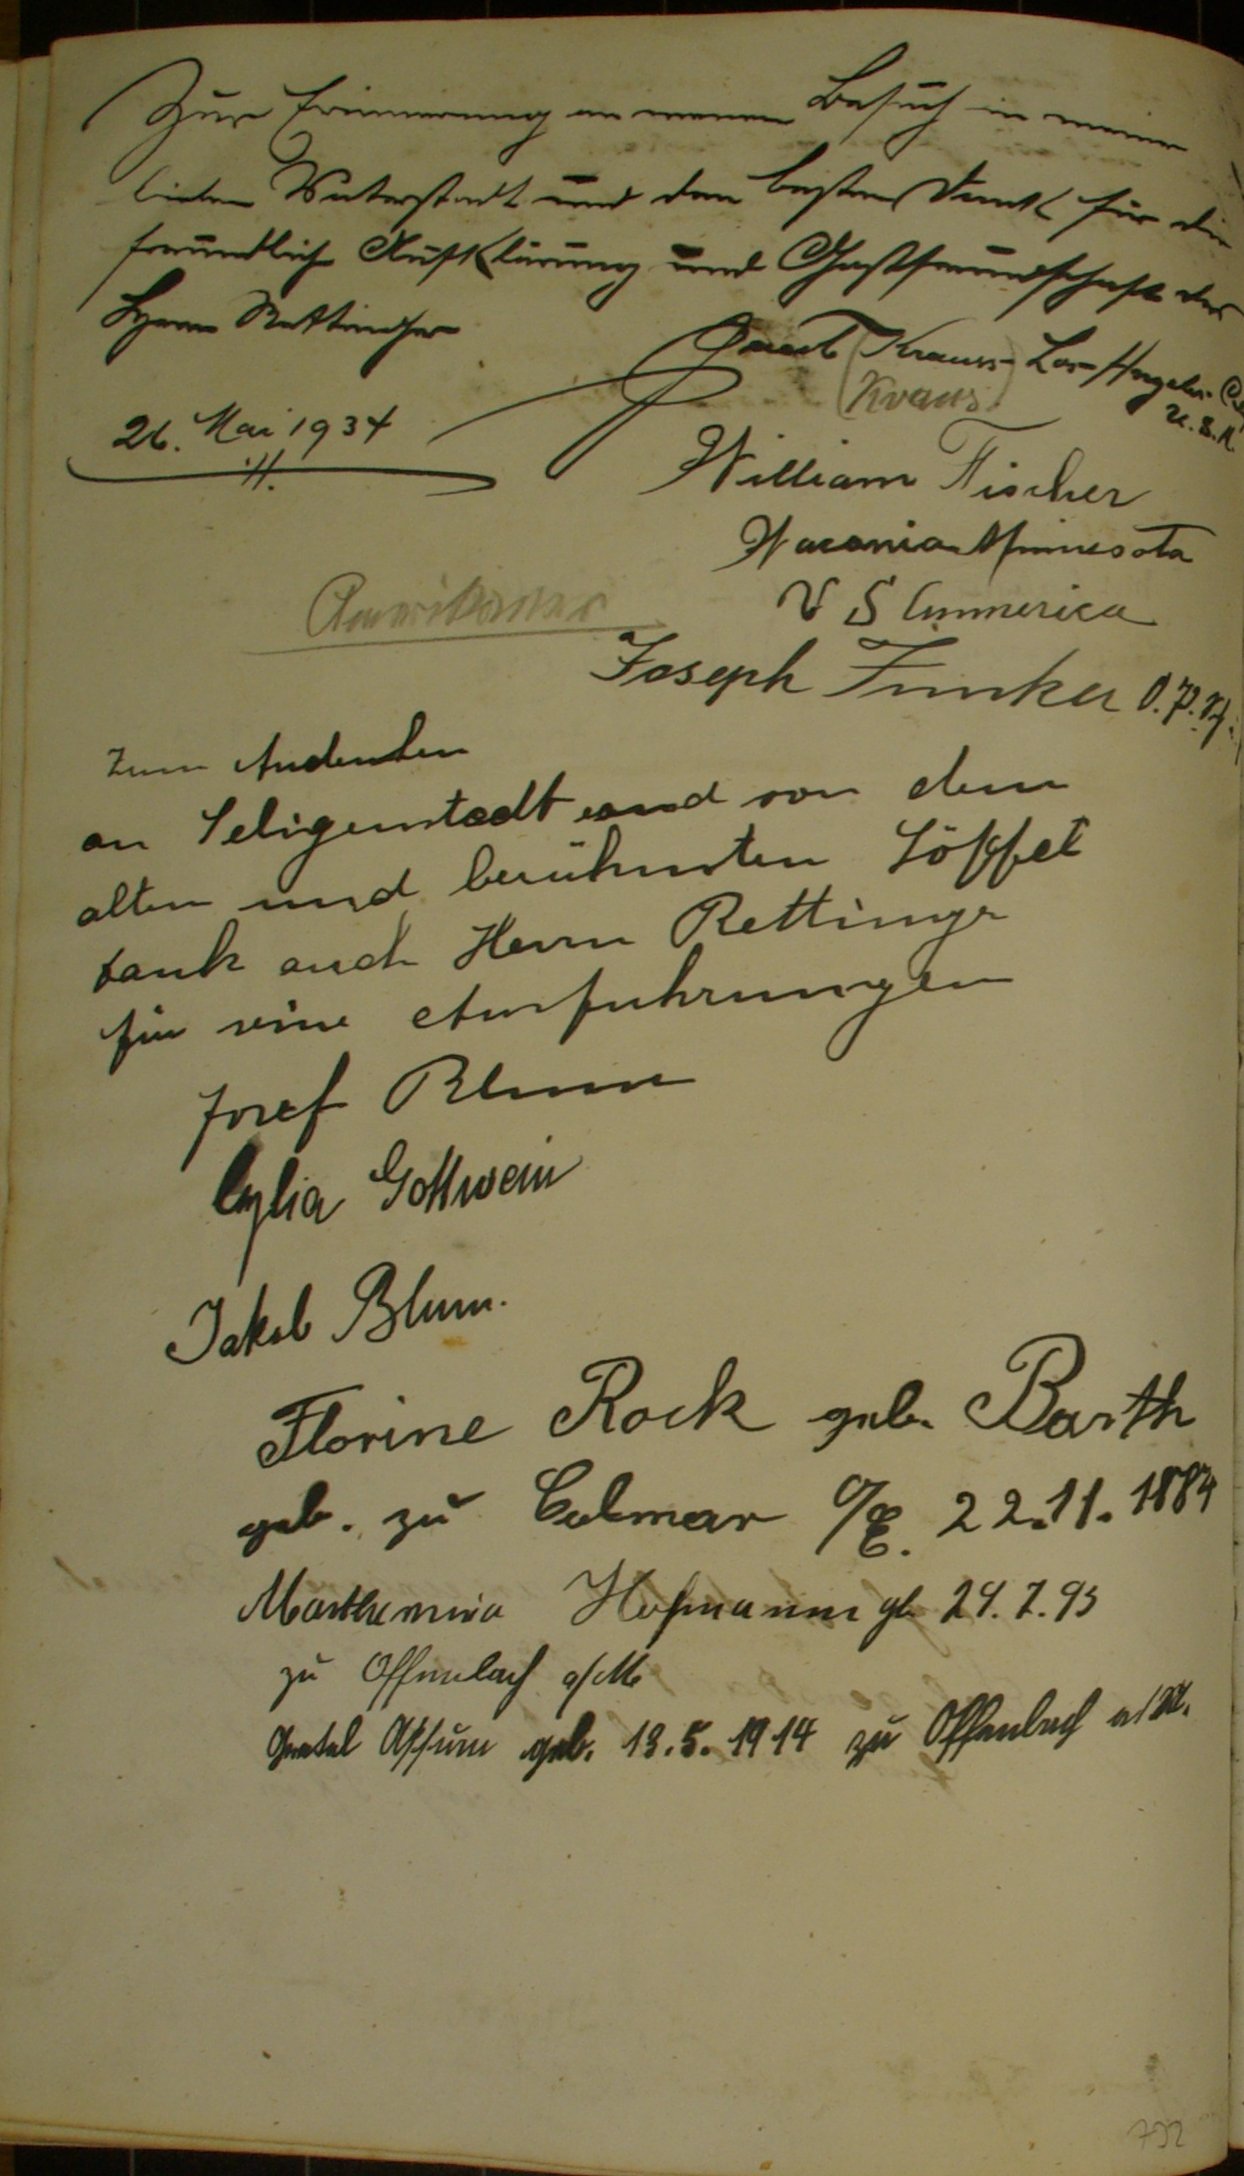 Zur Erinnerung an meinen Besuch in meiner
lieben Vaterstadt und den besten Dank für die
freundliche Aufklärung und Gastfreundschaft des
Herrn Rettinger
Kraus Los Angeles Cal.
(Kraus)
U.S.A.
26. Mai 1934
William Fischer
Waconia Minnesota
U S Ammerica
Amerikaner
Joseph Funker
Zum Andenken
an Seligenstadt und von dem
alten und berühmten Löffel
dank auch Herrn Rettinger
für seine Ausfuhrungen
Josef Blum
Gottwein
Jakob Blum.
Florine Rock geb. Barth
geb. zu Colmar i/E. 22.11.1884
Hofmann gb 24.7.93
zu Offenbach a/M
Gretel geb. 13.5.1914 zu Offenbach a/M.